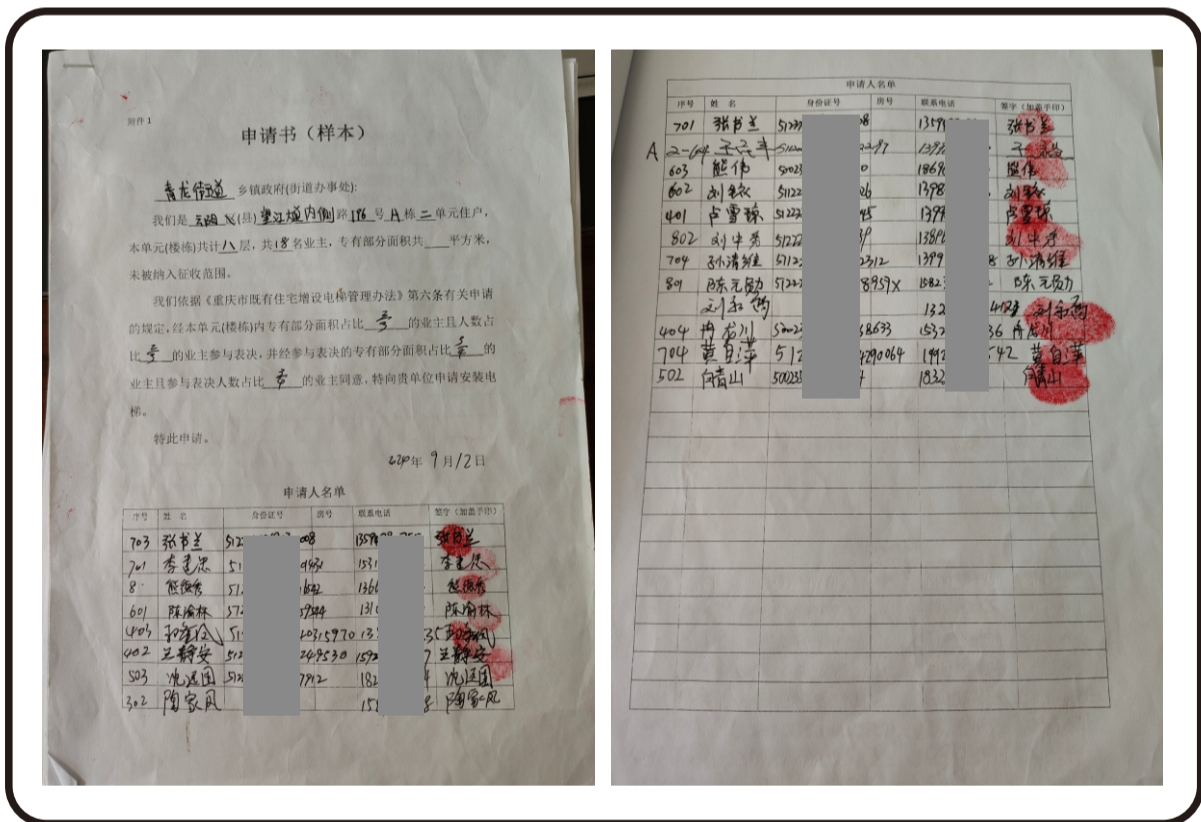 附件1
申请书（样本）
青龙街道 乡镇政府(街道办事处):
我们是 云阳 区(县) 望江城内侧 路 186 号 A 栋 二 单元住户,
本单元(楼栋)共计 八 层,共 18 名业主,专有部分面积共 平方米,
未被纳入征收范围。
我们依据《重庆市既有住宅增设电梯管理办法》第六条有关申请
的规定,经本单元(楼栋)内专有部分面积占比 的业主且人数占
比 的业主参与表决,并经参与表决的专有部分面积占比 的
业主且参与表决人数占比 的业主同意,特向贵单位申请安装电
梯。
特此申请。
年 9 月 12 日
申请人名单
序号 姓 名 身份证号 房号 联系电话 签字（加盖手印）
703 张书兰 512 008 1359 张书兰
701 李建忠 51 1531 李建忠
8 熊德秀 51 1366 熊德秀
601 陈渝林 51 1310 陈渝林
403 51 0315970 13
402 兰静安 512 249530 1592 7 兰静安
503 沈廷国 512 7912 182 沈廷国
302 陶家凤 15 8 陶家凤
申请人名单
序号 姓 名 身份证号 房号 联系电话 签字（加盖手印）
701 张书兰 5122 08 1359 张书兰
A 5120 2297 139
603 熊伟 50023 0 1869 熊伟
602 刘 51122 26 1398 刘
401 卢雪琼 51222 45 1399 卢雪琼
802 刘中秀 51222 39 1389 刘中秀
704 孙清维 51122 2312 1399 8 孙清维
801 陈元勋 51222 8959X 1582 陈元勋
刘和 132 刘和
404 冉龙川 50023 38633 1532 36 冉龙川
704 黄自萍 512 4290064 1992 542 黄自萍
502 向青山 500235 1832 向青山